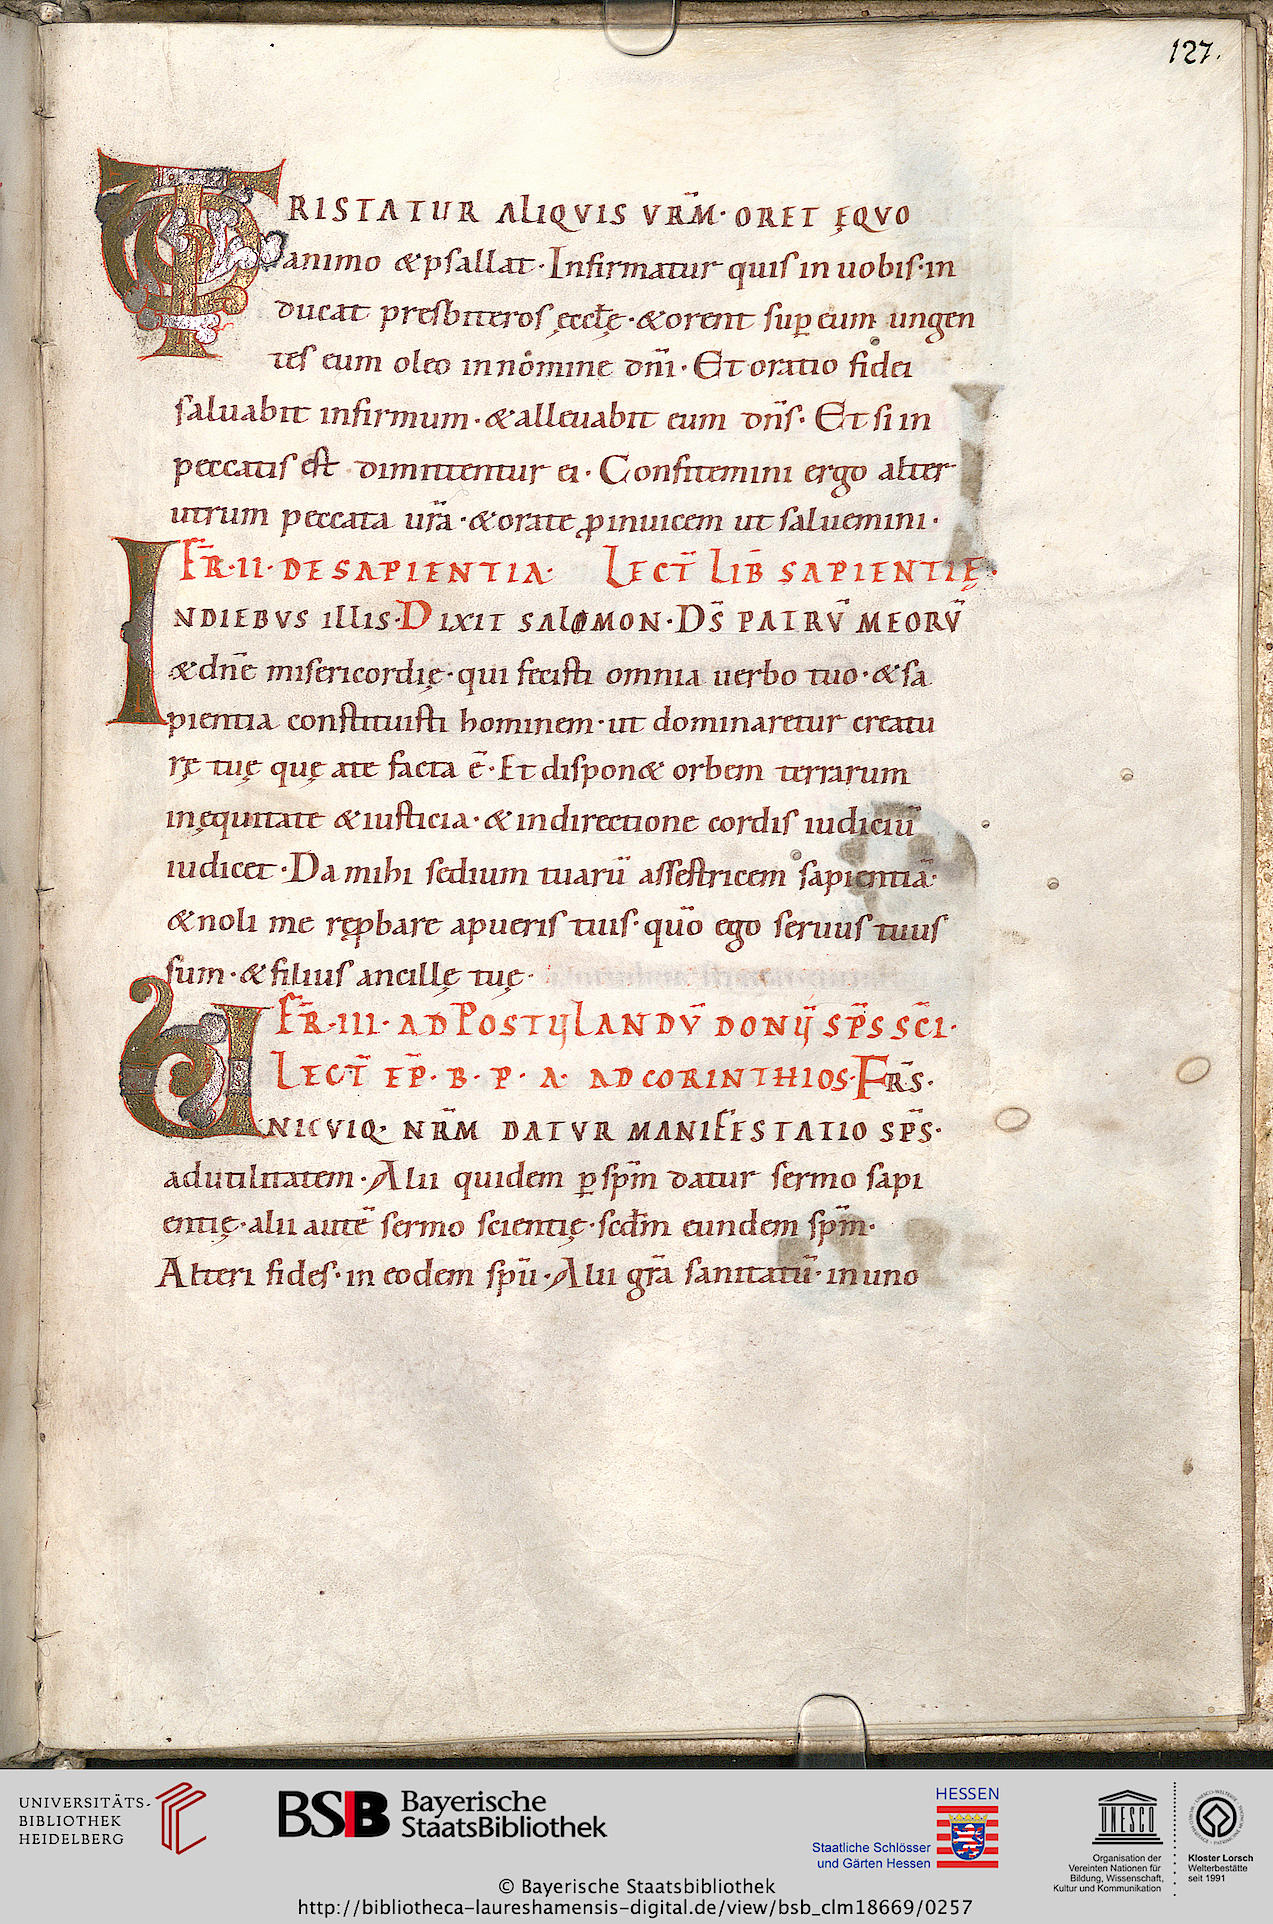 127.
TRISTATUR ALIQVIS VRM̄· ORET ĘQVO
animo &psallat·Infirmatur quis in uobis·in
ducat presbiteros ęccłę·&orent sup̱ eum ungen
tes eum oleo in nomine dn̄i·Et oratio fidei
saluabit infirmum·&alleuabit eum dn̄s·Et si in
peccatis est dimittentur ei·Confitemini ergo alter
utrum peccata ur̄a·&orate ꝓinuicem ut saluemini·
FR̄·II·DE SAPIENTIA· LECT̄ LIB̄ SAPIENTIĘ·
INDIEBVS ILLIS·DIXIT SALOMON·DS̄ PATRV̄ MEORV̄
&dn̄e misericordię·qui fecisti omnia uerbo tuo·&sa
pientia constituisti hominem·ut dominaretur creatu
rę tuę quę a te facta ē·Et dispon& orbem terrarum
in ęquitate &iusticia·&indirectione cordis iudiciū
iudicet·Da mihi sedium tuarū assestricem sapientiā·
&noli me reꝓbare apueris tuis·quō ego seruus tuus
sum·&filius ancillę tuę·
FR̄·III·AD POSTVLANDV̄ DONIJ SP̄S SC̄I·
LECT̄ EP̄·B·P·A·AD CORINTHIOS·FR̄S·
VNICVIQ·NR̄M DATVR MANIFESTATIO SP̄S·
adutilitatem·Alii quidem p̱ sp̄m datur sermo sapi
entię·alii autē sermo scientię·scd̄m eundem sp̄m·
Alteri fides·in eodem sp̄u·Alii gr̄a sanitatū·in uno
UNIVERSITÄTS-
BIBLIOTHEK
HEIDELBERG
BSB Bayerische
StaatsBibliothek
HESSEN
Staatliche Schlösser
und Gärten Hessen
UNESCO
Organisation der
Vereinten Nationen für
Bildung, Wissenschaft,
Kultur und Kommunikation
Kloster Lorsch
Welterbestätte
seit 1991
© Bayerische Staatsbibliothek
http://bibliotheca-laureshamensis-digital.de/view/bsb_clm18669/0257